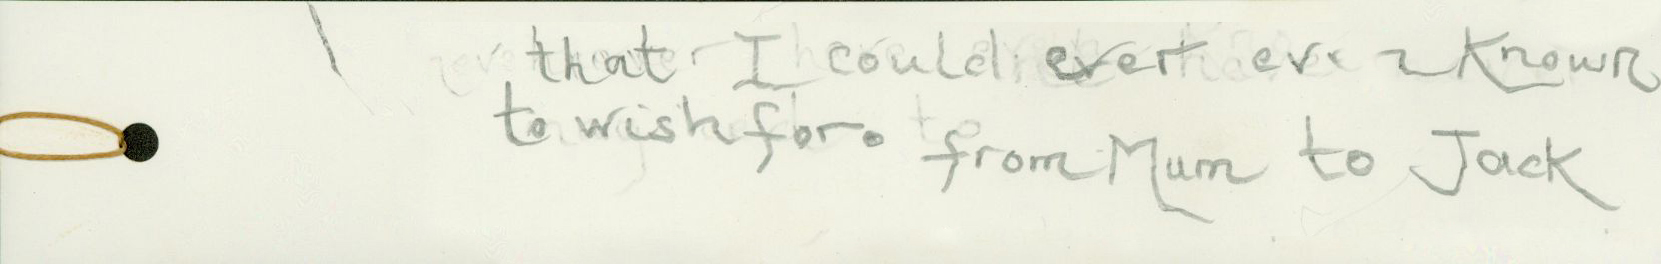 that I could ever even known
to wish for.
from Mum to Jack